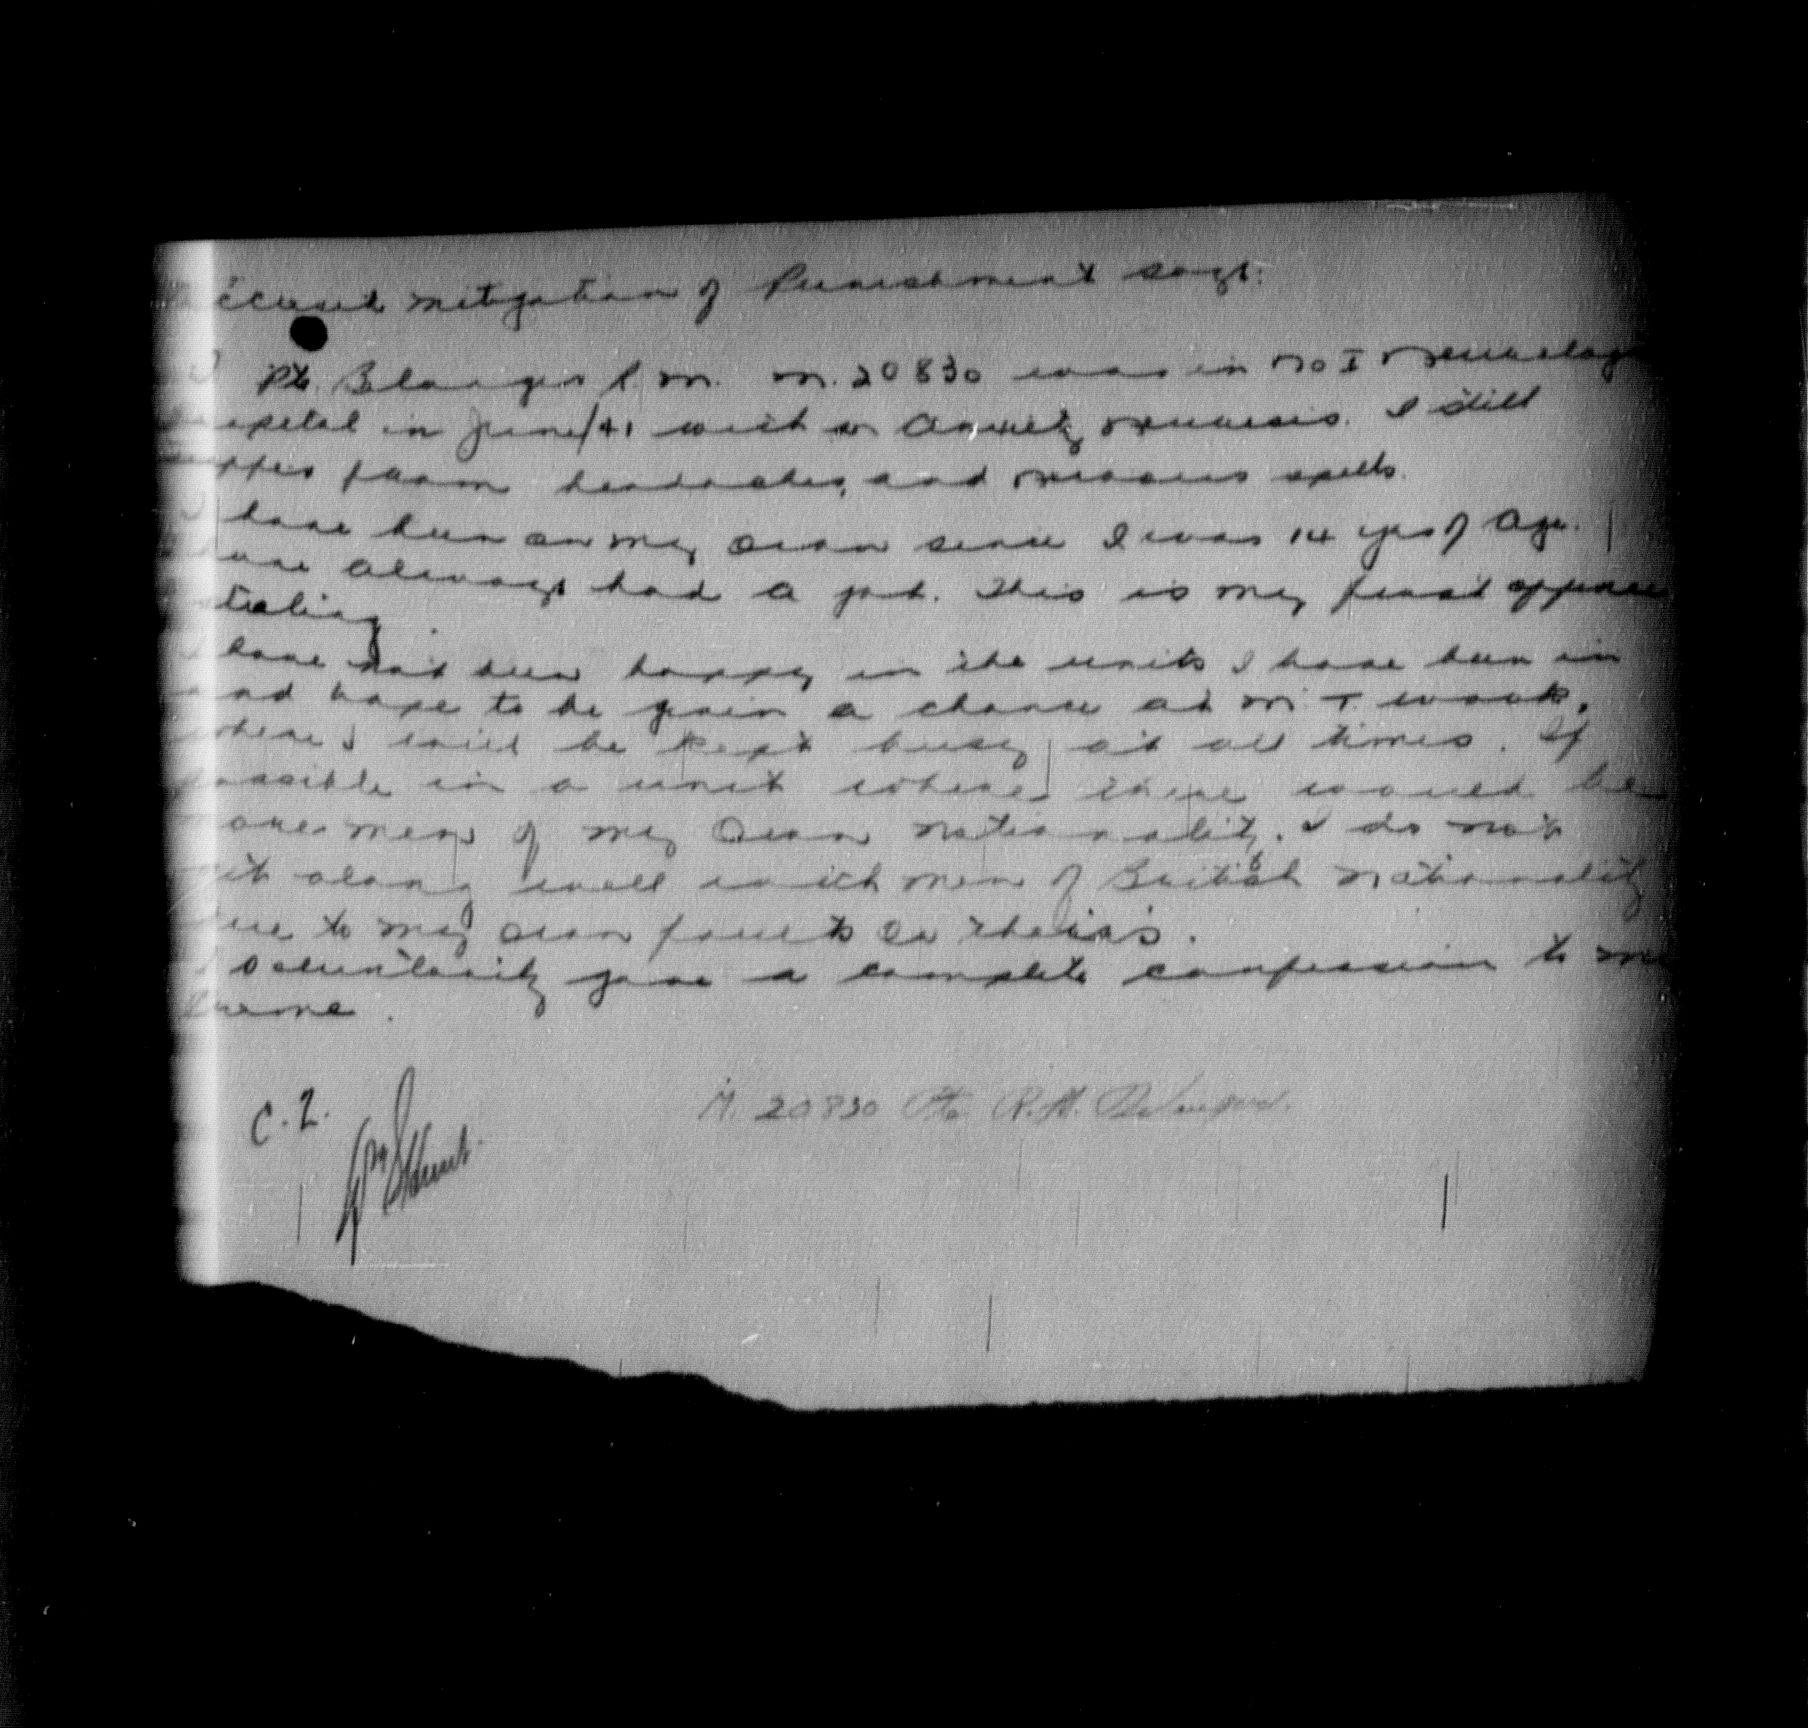 Accused mitigation of Punishment says:
I Pte. Belanger R.M. M.20830 was in No I Neurology
Hospital in June/41 with an Anxiety Neurosis. I still
suffer from headaches, and nervous spells.
I have been on my own since I was 14 yrs of Age.
have always had a job. This is my first offence
stealing.
I have not been happy in the units I have been in
and hope to be given a chance at M.T. work,
where I will be kept busy at all times. If
possible in a unit where there would be
more men of my own nationality. I do not
get along well with men of British nationality
due to my own faults or theirs.
I voluntarily gave a complete confession to my
crime.
M. 20830 Pte R.M. Belanger.
C.2.